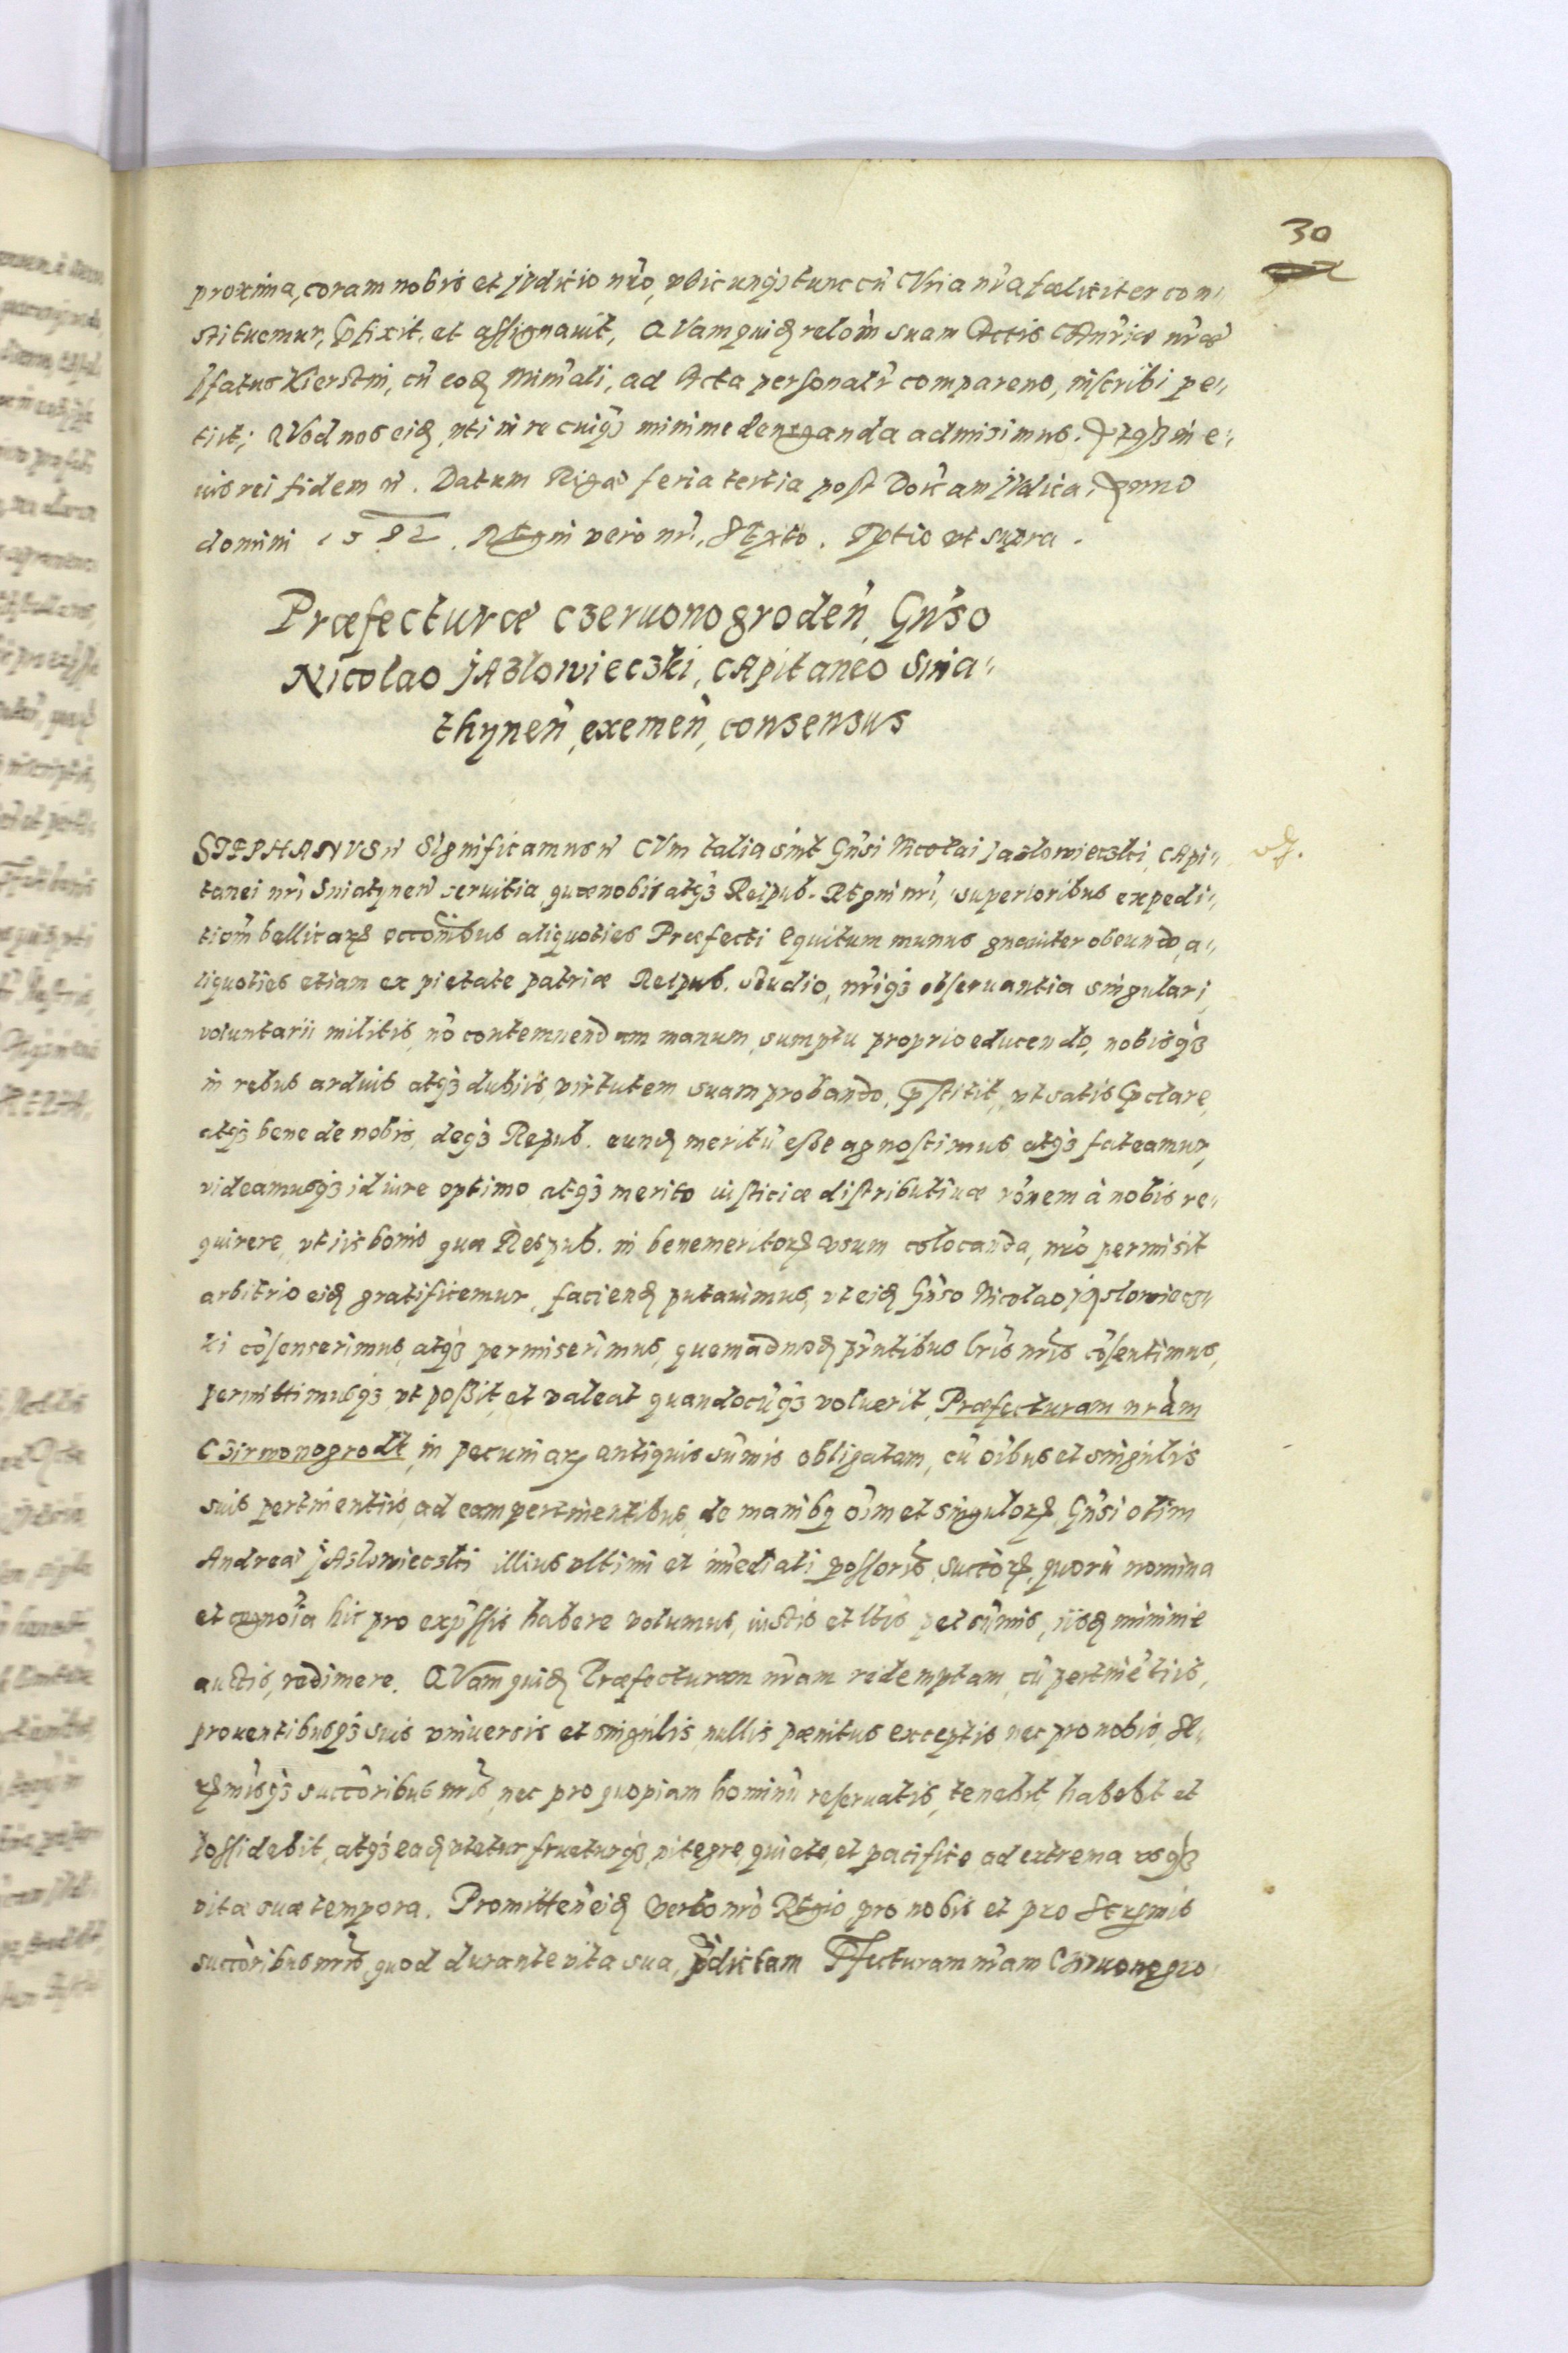 30
proxima, coram nobis et jVdicio nr̃o, vbicunq₃ tunc cũ CVria nr̃a fœliciter con„
stituemur, p̱fixit, et assignauit, QVam quid relom̃ suam Actis CAnr̃iæ nr̃æ
p̱fatus Kierstin, cũ eod Minr̃ali, ad Acta personalr̃ comparens, inscribi pe„
tiit; QVod nos eid, vti in re cuiq₃ minime deneganda admisimus. In e„
uis rei fidem ñ. Datum Rigæ feria tertia post Doic̃am jVdica, Anno
domini 1582. REgni vero nr̃i, SExto. Rptio vt supra.
Præfecturæ czeruonogroden̄, Gñso
Nicolao jAzlowieczki, CApitaneo Snia„
thynen̄, exemen̄, consensus
STEPHANVS ñ Significamus ñ CVm talia sint Gñsi Nicolai Jazlowieczki, CApi„
tanei nr̃i Sniatynen̄ seruitia, quæ nobis atq₃ Reipub. REgni nr̃i, superioribus expedi„
tiom̃ bellicarꝝ occõnibus aliquoties Præfecti equitum munus gnauiter obeundo, a„
liquoties etiam ex pietate patriæ Reipub. studio, nr̃iq₃ obseruantia singulari,
voluntarii militis, nõ contemnendam manum, sumptu proprio educendo, nobisq₃
in rebus arduis atq₃ dubiis, virtutem suam probando, p̱stitit, vt satis p̱clare,
atq₃ bene de nobis, deq₃ Repub. eund meritũ esse agnoscimus atq₃ fateamur,
videamusq₃ id iure optimo, atq₃ merito iusticiæ distributiuæ rõnem à nobis re„
quirere, vt iis bonis quæ Respub. in benemeritorꝝ vsum colocanda, nr̃o permisit
arbitrio eid gratificemur, faciend putauimus, vt eid Gñso Nicolao jAsloviecz„
ki cõsenserimus, atq₃ permiserimus, quemadmod pr̃ntibus lr̃is nr̃is cõsentimus,
permittimusq₃ vt possit, et valeat quandocũq₃ voluerit, Præfecturam nr̃am
Czirwonogrodt, in pecuniarꝝ antiquis sum̃is obligatam, cũ oĩbus et singulis
suis pertinentiis, ad eam pertinentibus, de manibꝯ oĩm et singulorꝝ, Gñsi olim
Andreæ jAslowieczki illius vltimi et im̃ediati possoris, succorꝝ, quorũ nomina
et cognoĩa hic pro exp̱ssis habere volumus, iustis et ltis pet sum̃is, iisd minime
auctis, redimere. QVam quid Præfecturam nr̃am redemptam, cũ pertinẽtiis,
prouentibusq₃ suis vniuersis et singulis, nullis pænitus exceptis, nec pro nobis, SE„
rꝝmisq₃ succõribus nr̃is, nec pro quopiam hominũ reseruatis, tenebit, habebt et
possidebit, atq₃ ead vtetur frueturq₃, integre, quiete, et pacifice ad extrema vsq₃
vitæ suæ tempora. Promitten̄ eid Verbo nr̃o REgio pro nobis et pro SErꝝmis
succõribus nr̃is, quod durante vita sua, p̱dictam P̱fecturam nr̃am Czeruonogro